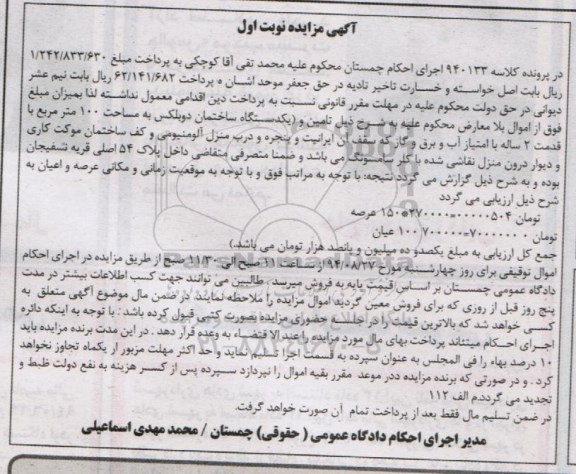 آگهی مزایده نوبت اول
در پرونده کلاسه ۹۴۰۱۳۳ اجرای احکام چمستان محکوم علیه محمد تقی آقا کوچکی به پرداخت مبلغ ۱/۲۴۲/۸۳۳/۶۳۰
ریال بابت اصل خواسته و خسارت تاخیر تادیه در حق جعفر موحد اشبان ه پرداخت ۶۲/۱۴۱/۶۸۲ ریال بابت نیم عشر
دیوانی در حق دولت محکوم علیه در مهلت مقرر قانونی نسبت به پرداخت دین اقدامی معمول نداشته لذا بمیزان مبلغ
فوق از اموال بلا معارض محکوم علیه به شرح ذیل تامین و (یکدستگاه ساختمان دوبلکس به مساحت ۱۰۰ متر مربع با
قدمت ۲ ساله با امتیاز آب و برق و گاز ایرانیت و پنجره و درب منزل آلومنیومی و کف ساختمان موکت کاری
و دیوار درون منزل نقاشی شده با می باشد و ضمنا متصرفی متقاضی داخل پلاک ۵۴ اصلی قریه تسفیجان
بوده و به شرح ذیل گزارش می گردد نتیجه: با توجه به مراتب فوق و با توجه به موقعیت زمانی و مکانی عرصه و اعیان به
شرح ذیل ارزیابی می گردد
عرصه تومان
تومان ۷۰۰۰۰۰۰۰=۷۰۰۰۰۰ ۱۰۰ عیان
جمع کل ارزیابی به مبلغ یکصدو ده میلیون و پانصد هزار تومان می باشد)
اموال توقیفی برای روز چهارشنبه مورخ ۹۴/۰۸/۲۷ از ساعت ۱۱ صبح الی ۱۱/۳۰ صبح از طریق مزایده در اجرای احکام
دادگاه عمومی چمستان بر اساس قیمت پایه به فروش میرسد، طالبین می توانند جهت کسب اطلاعات بیشتر در مدت
پنج روز قبل از روزی که برای فروش معین گردید اموال مزایده را ملاحظه نمایند در ضمن مال موضوع آگهی متعلق به
کسی خواهد شد که بالاترین قیمت را در جلسه حضوری مزایده بصورت کتبی قبول کرده باشد؛ با توجه به اینکه دائره
اجرای احکام میتند پرداخت بهای مال مورد مزایده را عندالا قتضاء به وعده قرار دهد. در این مدت برنده مزایده باید
۱۰ درصد بهاء را فی المجلس به عنوان سپرده به قسمت اجرا تسلیم نماید وحد اکثر مهلت مزبور از یکماه تجاوز نخواهد
کرد. و در صورتی که برنده مزایده ددر موعد مقرر بقیه اموال را نپردازد سپرده پس از کسر هزینه به نفع دولت ظبط و
تجدید می گردد.م الف ۱۱۲
در ضمن تسلیم مال فقط بعد از پرداخت تمام آن صورت خواهد گرفت.
مدیر اجرای احکام دادگاه عمومی (حقوقی) چمستان / محمد مهدی اسماعیلی